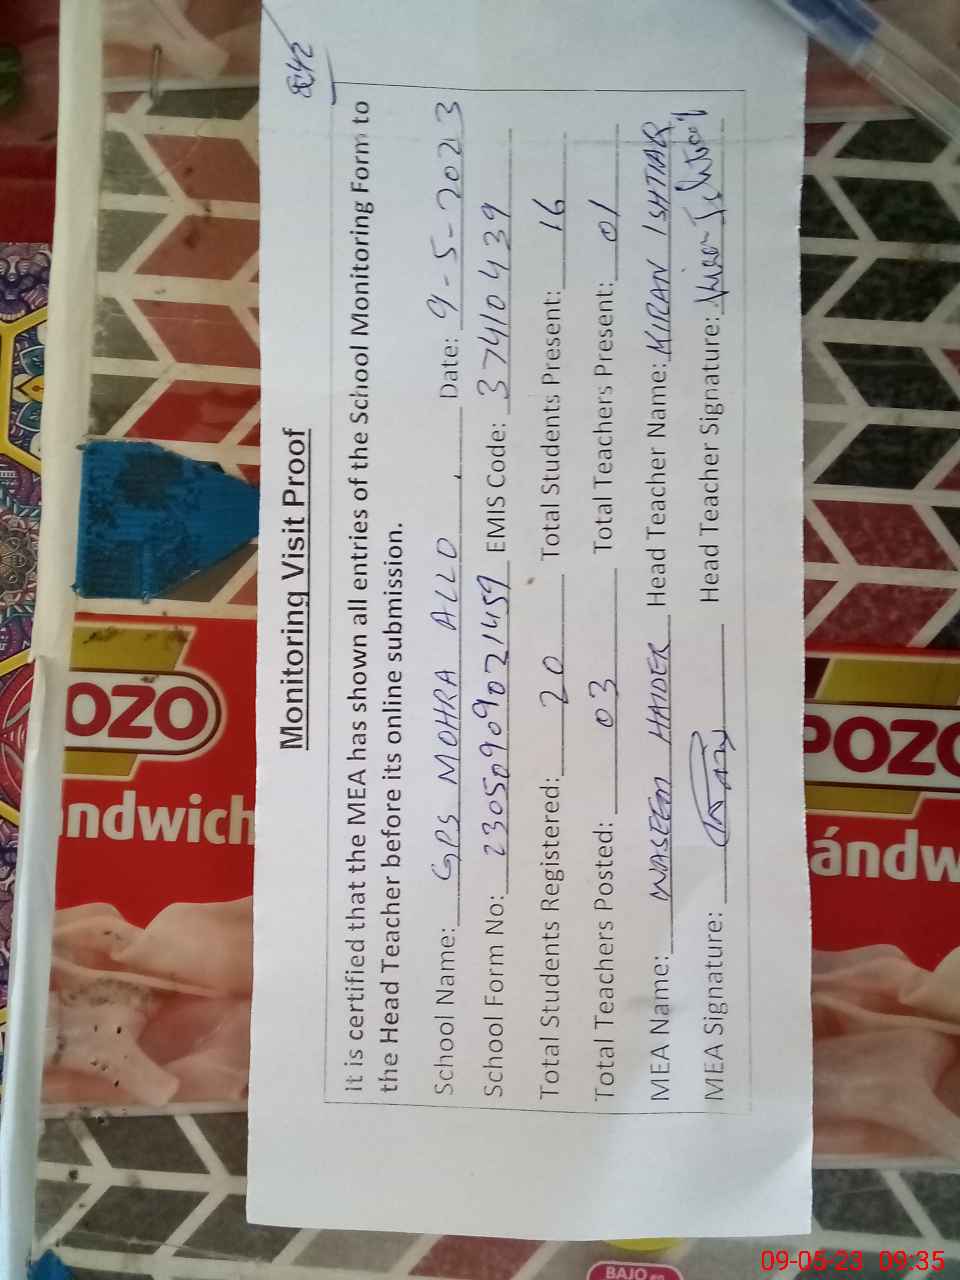 Monitoring Visit Proof
It is certified that the MEA has shown all entries of the School Monitoring Form to
the Head Teacher before its online submission.
School Name: GPS MOHRA ALLO Date: 9-5-2023
School Form No: 23050909021459 EMIS Code: 37410439
Total Students Registered: 20 Total Students Present: 16
Total Teachers Posted: 03 Total Teachers Present: 01
MEA Name: WASEEM HAIDER Head Teacher Name: KIRAN ISHTIAQ
MEA Signature: Head Teacher Signature:
OZO
ndwich
POZO
ándw
BAJO en
09-05-23 09:35